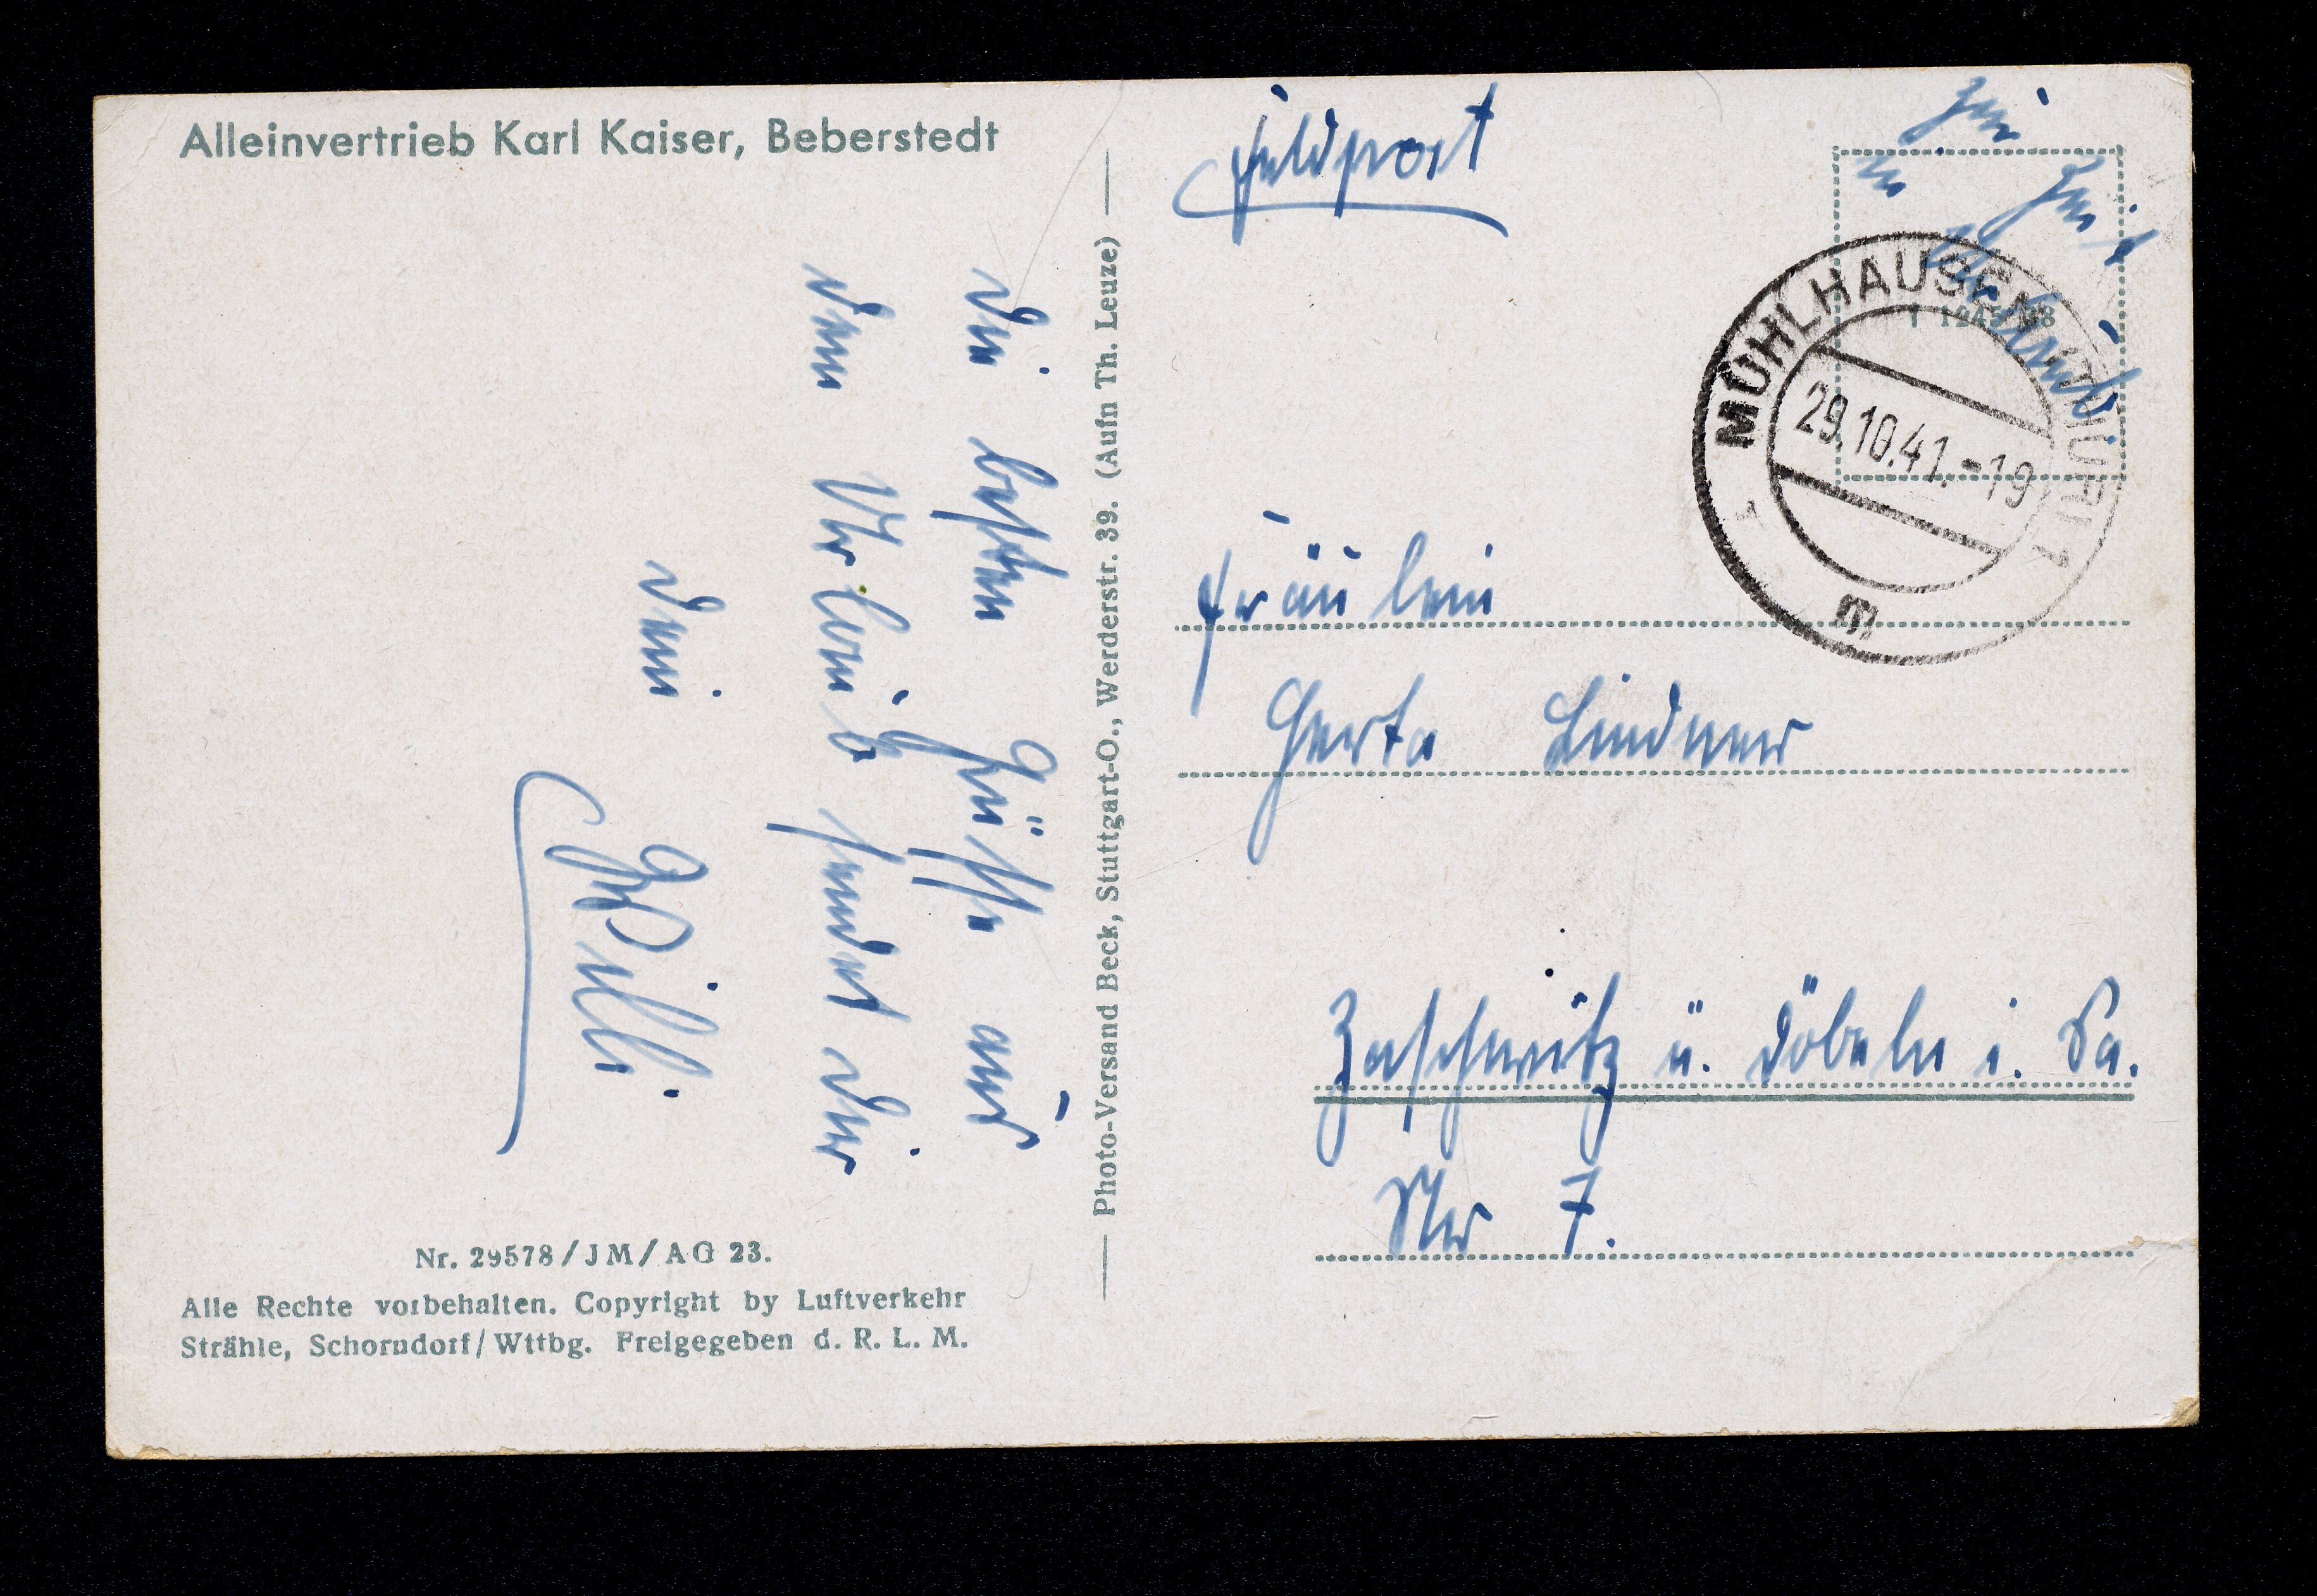 Alleinvertrieb Karl Kaiser, Beberstedt
Die besten Grüsse aus
dem Urlaub sendet Dir
Dein
Willi
Nr. 29578/JM/AG 23.
Alle Rechte vorbehalten. Copyright by Luftverkehr
Strähle, Schorndorf/Wttbg. Freigegeben d. R. L. M.
Photo-Versand Beck, Stuttgart-O., Werderstr. 39. (Aufn Th. Leuze)
Feldpost
MÜHLHAUSEN (THÜR) 1
29.10.41.-19
m
Fräulein
Herta Lindner
Zaschwitz ü. Döbeln i. Sa.
Nr 7.